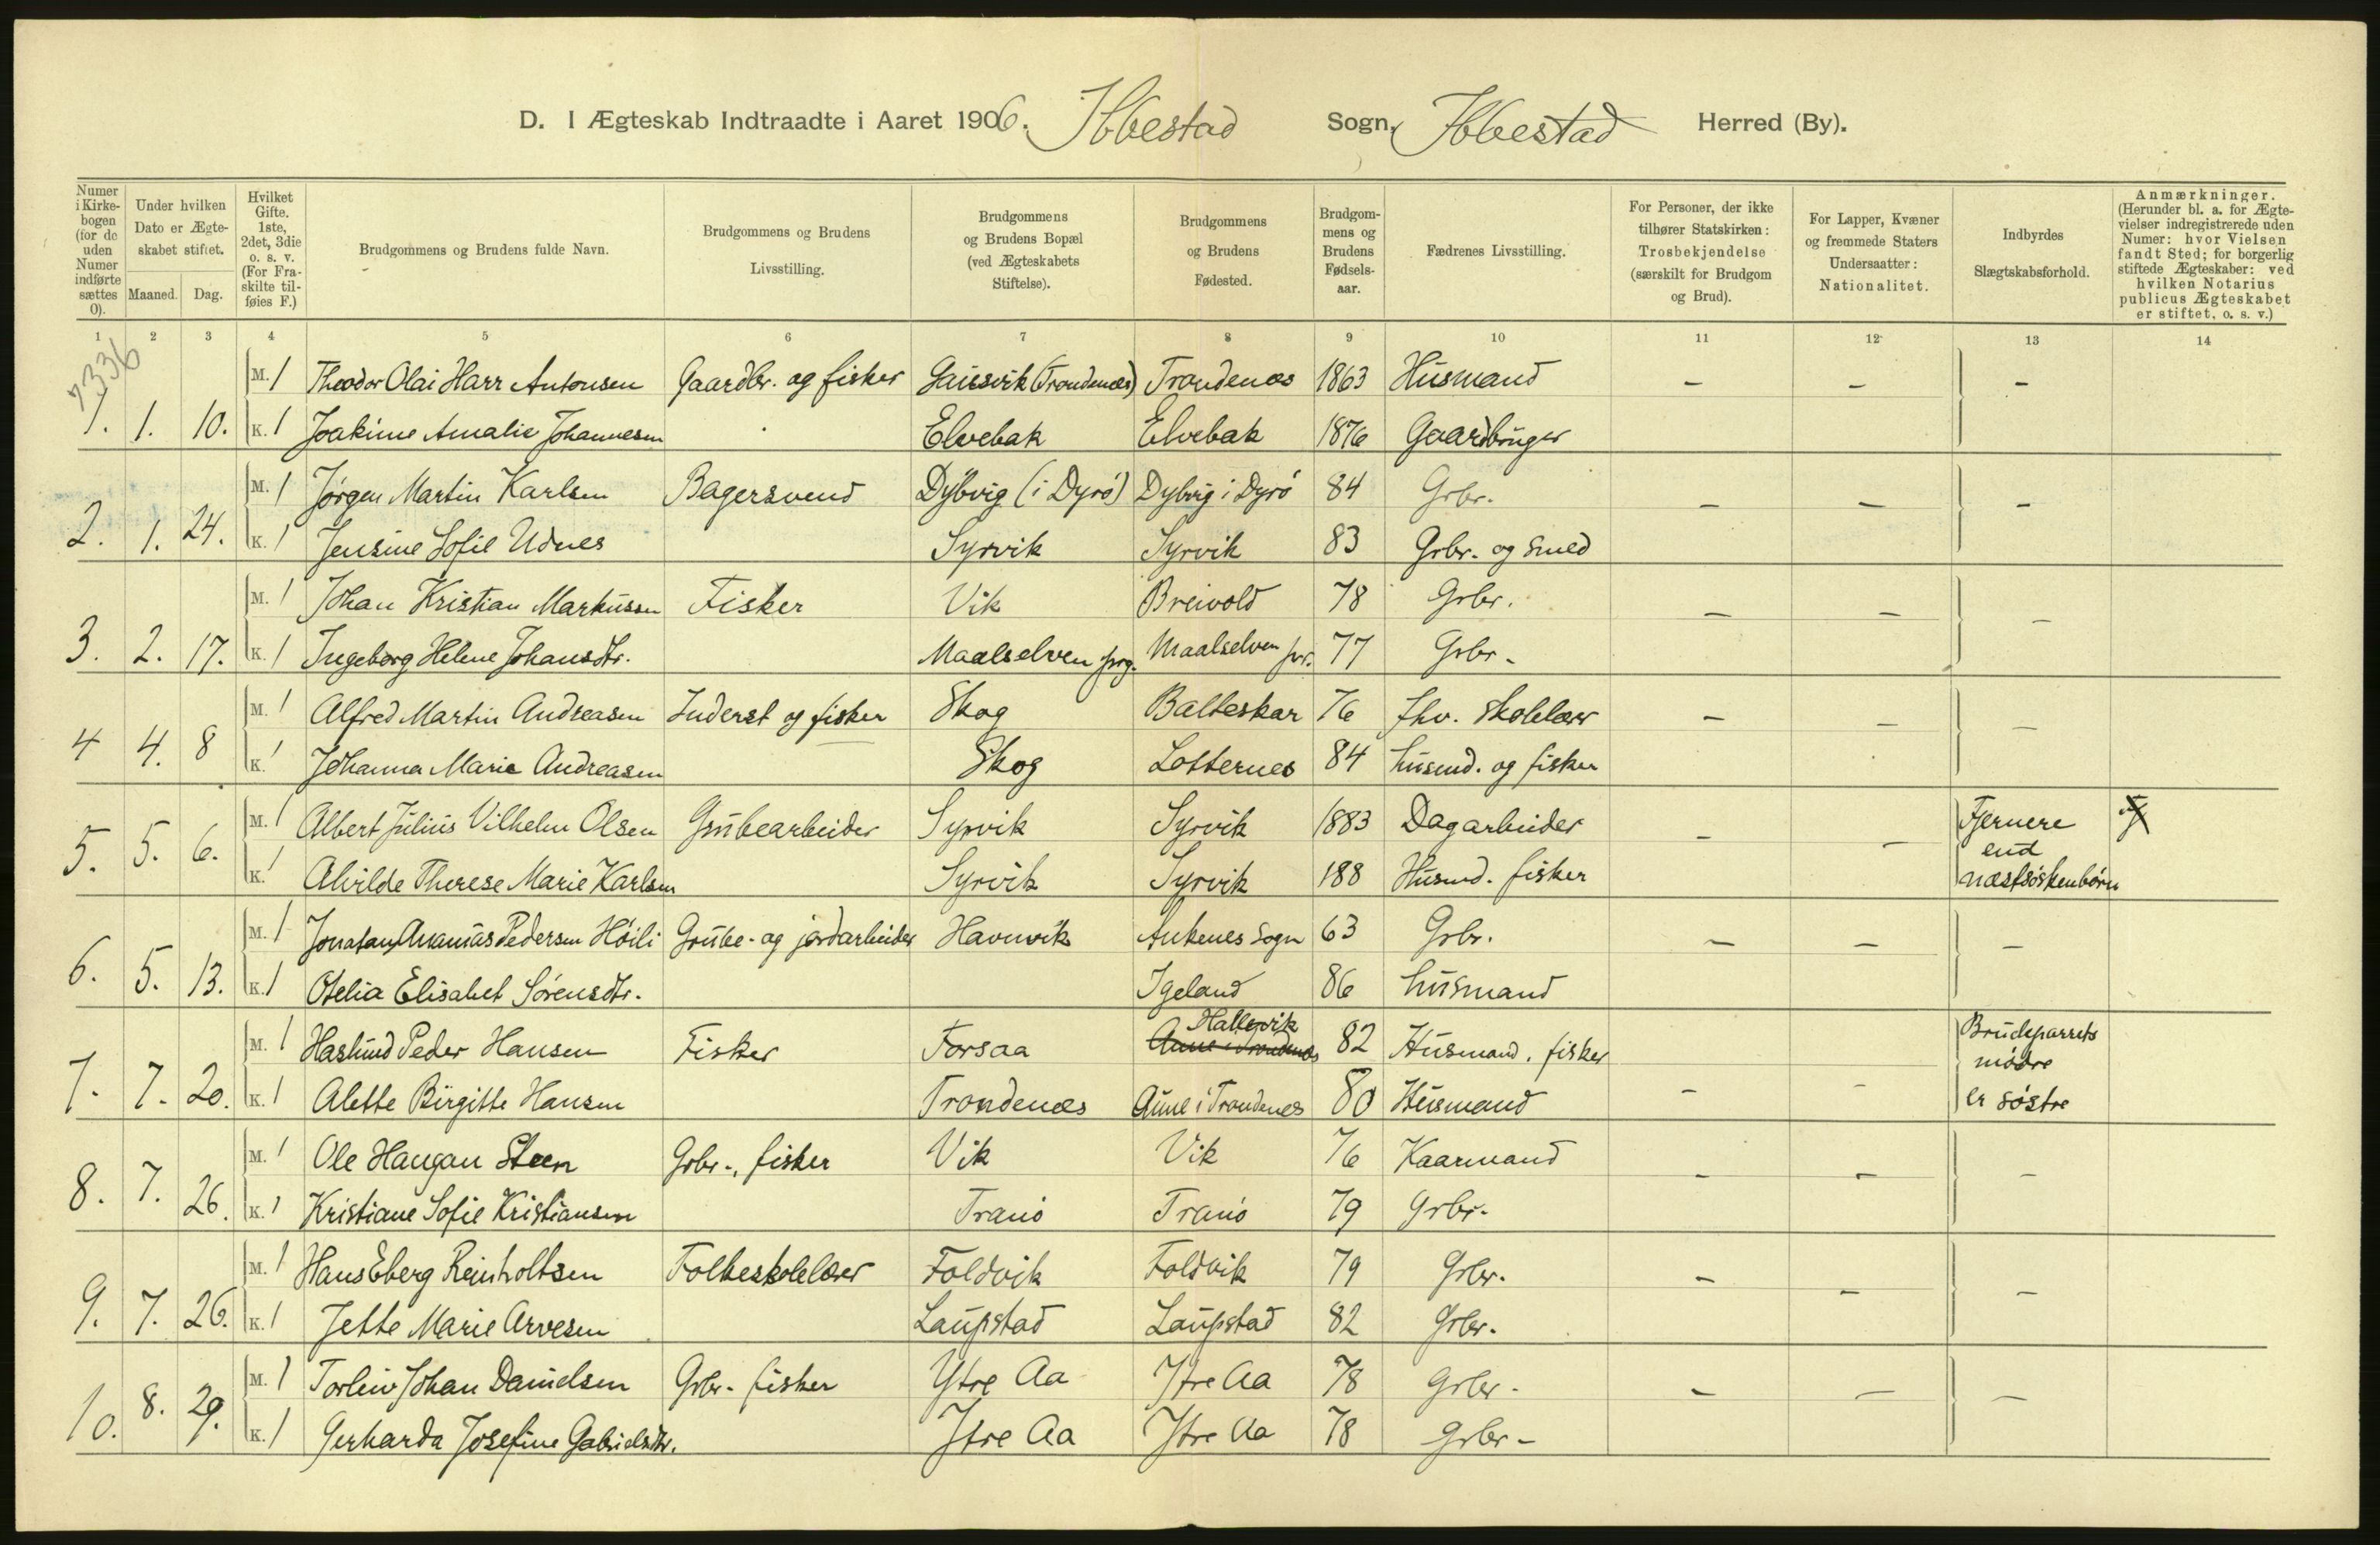 D. I Ægteskab Indtraadte i Aaret 1906. Ibbestad Sogn, Ibbestad Herred (By).
Numer i Kirkebogen (for de uden Numer indførte sættes 0).
Under hvilken Dato er Ægteskabet stiftet.
Maaned. Dag.
Hvilket Gifte. 1ste, 2det, 3die o. s. v. (For Fraskilte tilføies F.)
Brudgommens og Brudens fulde Navn.
Brudgommens og Brudens Livsstilling.
Brudgommens og Brudens Bopæl (ved Ægteskabets Stiftelse).
Brudgommens og Brudens Fødested.
Brudgommens og Brudens Fødselsaar.
Fædrenes Livsstilling.
For Personer, der ikke tilhører Statskirken: Trosbekjendelse (særskilt for Brudgom og Brud).
For Lapper, Kvæner og fremmede Staters Undersaatter: Nationalitet.
Indbyrdes Slægtskabsforhold.
Anmærkninger. (Herunder bl. a. for Ægtevielser indregistrerede uden Numer: hvor Vielsen fandt Sted; for borgerlig stiftede Ægteskaber: ved hvilken Notarius publicus Ægteskabet er stiftet, o. s. v.)
1 2 3 4 5 6 7 8 9 10 11 12 13 14
7336
M. 1 Theodor Olai Harr Antonsen Gaardbr. og fisker Gausvik (Trondenæs) Trondenæs 1863 Husmand - - -
1. 1. 10. K. 1 Joakime Amalie Johannesen Elvebak Elvebak 1876 Gaardbruger
M. 1 Jørgen Martin Karlsen Bagersvend Dybvig (i Dyrø) Dybvig i Dyrø 84 Grbr. - - -
2. 1. 24. K. 1 Jensine Sofie Udnes Syrvik Syrvik 83 Grbr. og smed
M. 1 Johan Kristian Markussen Fisker Vik Breivold 78 Grbr. - - -
3. 2. 17. K. 1 Ingeborg Helene Johansdtr. Maalselven prg. Maalselven pr. 77 Grbr.
M. 1 Alfred Martin Andreasen Inderst og fisker Skog Balteskar 76 fhv. Skolelærer - - -
4 4. 8 K. 1 Johanna Marie Andreasen Skog Lotternes 84 husmd. og fisker
M. 1 Albert Julius Vilhelm Olsen Grubearbeider Syrvik Syrvik 1883 Dagarbeider - - Fjernere
5. 5. 6. end
K. 1 Alvilde Therese Marie Karlsen Syrvik Syrvik 188 Husmd. fisker næstsøskenbørn
M. 1 Jonatan Ananias Pedersen Høili Grube- og jordarbeider Havnvik Ankenes Sogn 63 Grbr. - - -
6. 5. 13. K. 1 Otelia Elisabet Sørensdtr. Igeland 86 husmand
Hallevik
M. 1 Haslund Peder Hansen Fisker Forsaa Aune i Trondenæs 82 Husmand. fisker Brudeparrets
mødre
7. 7. 20. K. 1 Alette Birgitte Hansen Trondenæs Aune i Trondenes 80 Husmand - - er søstre
M. 1 Ole Haugan Steen Grbr., fisker Vik Vik 76 Kaarmand - - -
8. 7. 26. K. 1 Kristiane Sofie Kristiansen Tranø Tranø 79 Grbr.
M. 1 Hans Eberg Reinholtsen Folkeskolelærer Foldvik Foldvik 79 Grbr. - - -
9. 7. 26. K. 1 Jette Marie Arvesen Laupstad Laupstad 82 Grbr.
M. 1 Torleiv Johan Danielsen Grbr. fisker Ytre Aa Ytre Aa 78 Grbr. - - -
10. 8. 29. K. 1 Gerharda Josefine Gabrielsdtr. Ytre Aa Ytre Aa 78 Grbr.